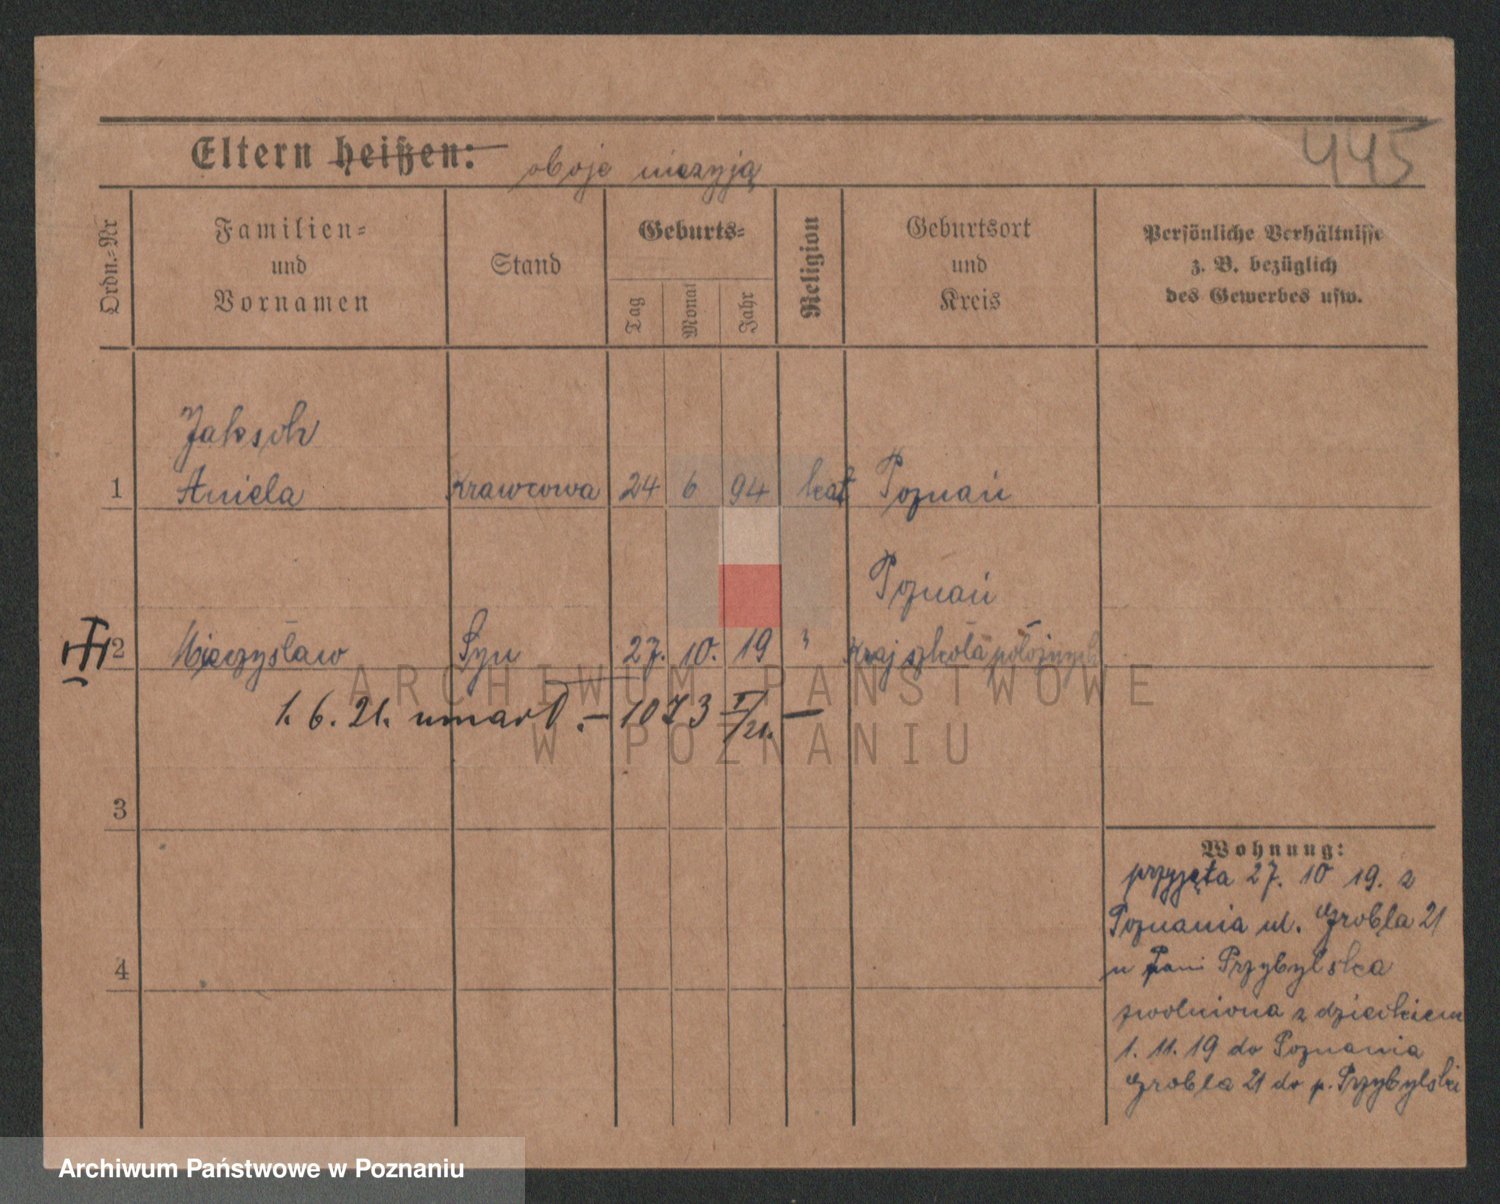 445
Eltern heißen: oboje nieżyją
Ordn.-Nr
Familien-
und
Vornamen
Stand
Geburts-
Tag
Monat
Jahr
Religion
Geburtsort
und
Kreis
Persönliche Verhältnisse
z. B. bezüglich
des Gewerbes usw.
Jaksch
1 Aniela Krawcowa 24 6 94 kat Poznań
Poznań
2 Mieczysław Syn 27. 10. 19 " Kraj szkoła położnych
1. 6. 21. umarł. – 1073 V/21. –
3
Wohnung:
przyjęta 27. 10 19. z
Poznania ul. Grobla 21
u Pani Przybylska
4
zwolniona z dzieckiem
1. 11. 19 do Poznania
Grobla 21 do p. Przybylski
ARCHIWUM PAŃSTWOWE
W POZNANIU
Archiwum Państwowe w Poznaniu